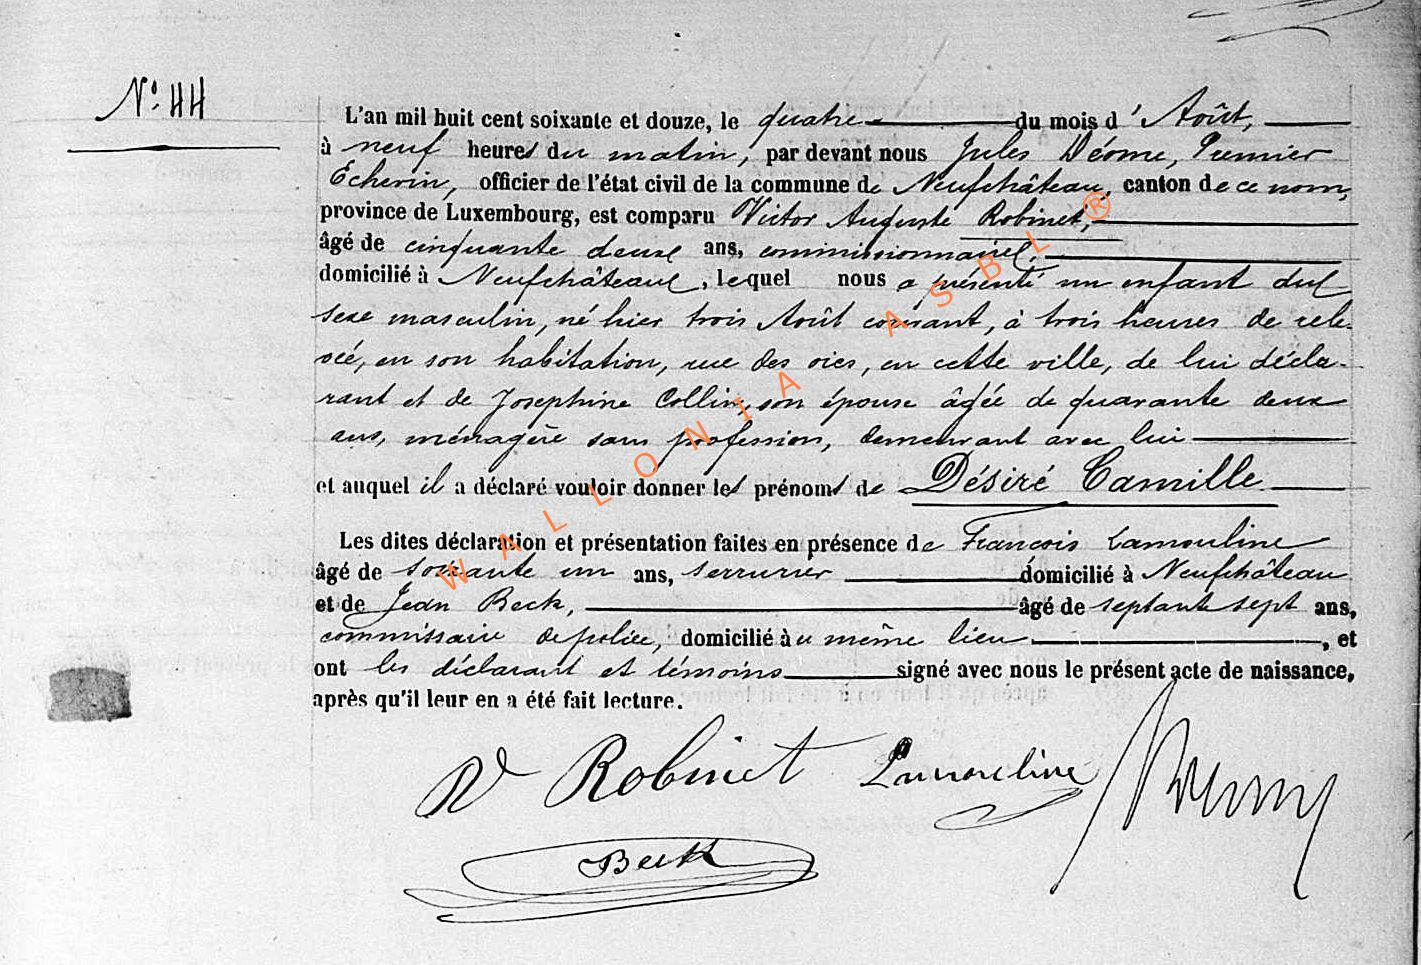 N° 44
L'an mil huit cent soixante et douze, le quatre du mois d'Août,
à neuf heures du matin, par devant nous Jules Déome, Premier
Echevin, officier de l'état civil de la commune de Neufchâteau, canton de ce nom,
province de Luxembourg, est comparu Victor Auguste Robinet,
âgé de cinquante deux ans, commissionnaire,
domicilié à Neufchâteau, lequel nous a présenté un enfant du
sexe masculin, né hier trois Août courant, à trois heures de rele-
vée, en son habitation, rue des oies, en cette ville, de lui décla-
rant et de Josephine Collin, son épouse âgée de quarante deux
ans, ménagère sans profession, demeurant avec lui
et auquel il a déclaré vouloir donner les prénoms de Désiré Camille
Les dites déclaration et présentation faites en présence de Francois Lamouline
âgé de soixante un ans, serrurier domicilié à Neufchâteau
et de Jean Beck, âgé de septante sept ans,
commissaire de police, domicilié au même lieu, et
ont les déclarant et témoins signé avec nous le présent acte de naissance,
après qu'il leur en a été fait lecture.
V Robinet Lamouline
Beck
WALLONIA ASBL ®